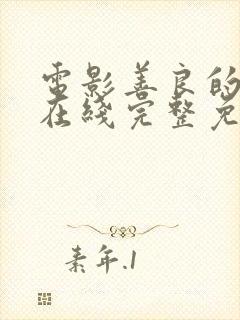 电影善良的
在线完整免
素年.1